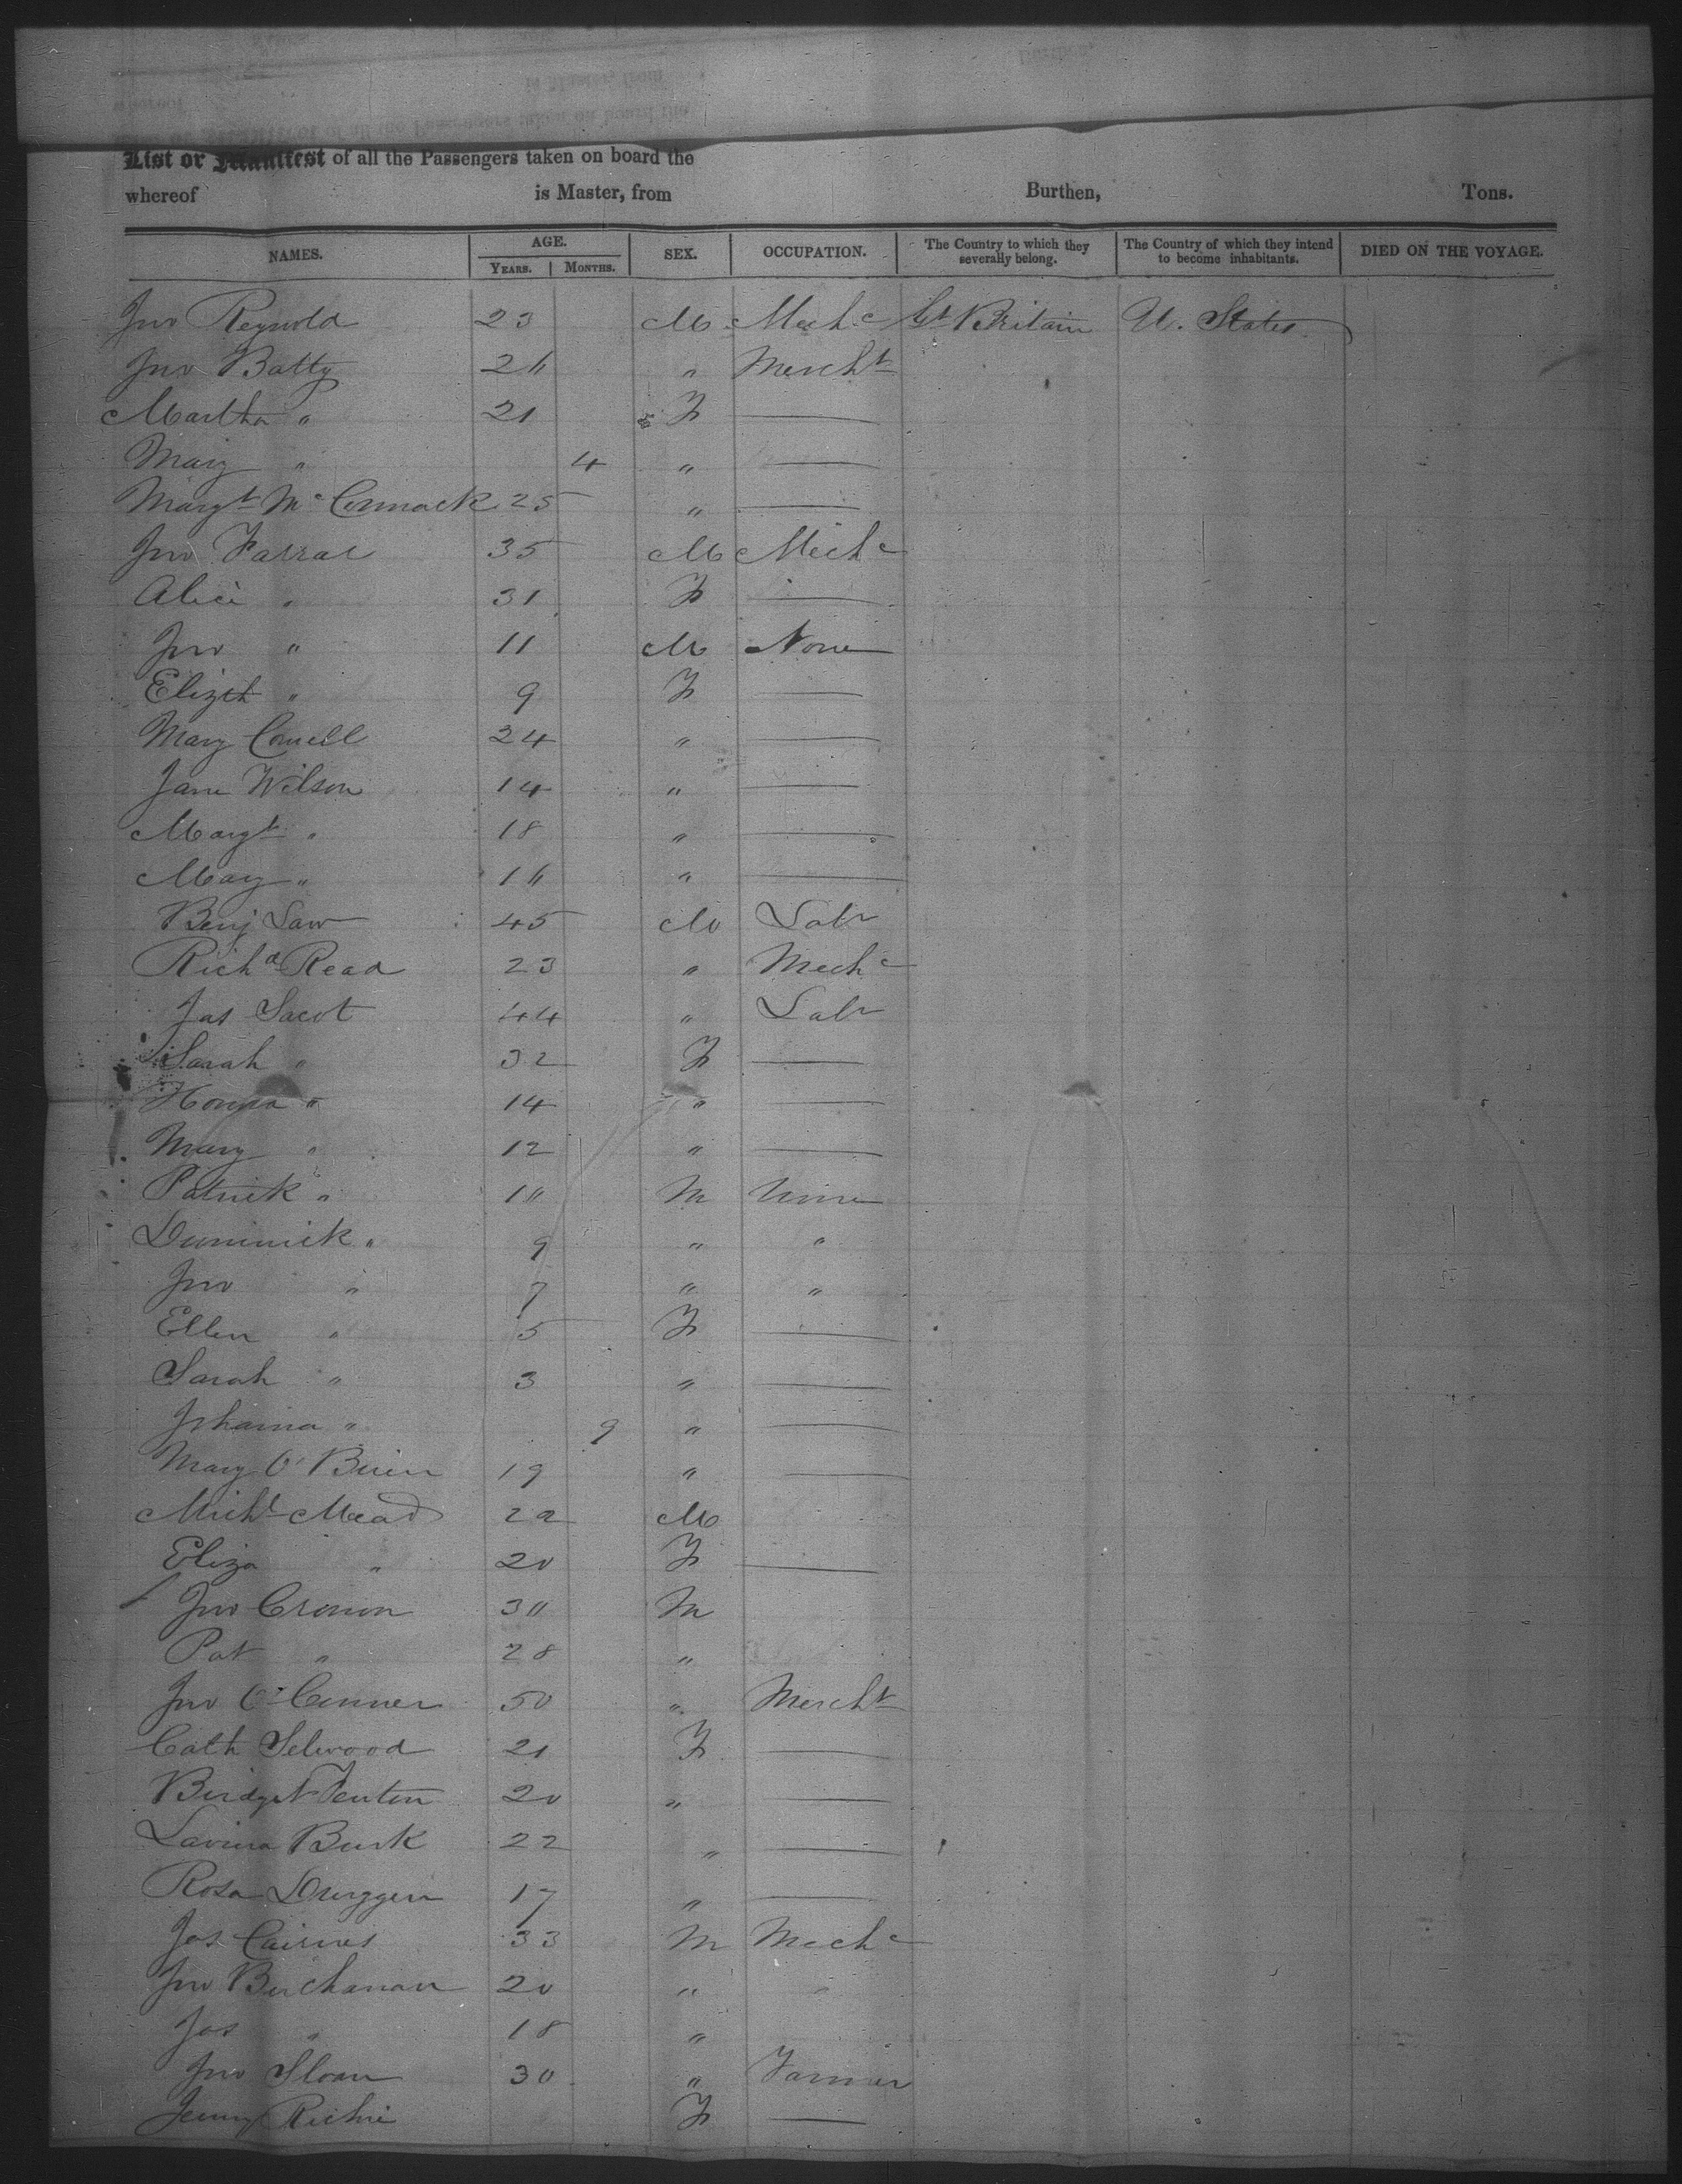 List or Manifest of all the Passengers taken on board the
whereof is Master, from Burthen, Tons.
NAMES. AGE. YEARS. MONTHS. SEX. OCCUPATION. The Country to which they severally belong. The Country of which they intend to become inhabitants. DIED ON THE VOYAGE.
Jno Reynold 23 M Mech c Gt Britain U. States
Jno Batty 26 " Mercht
Martha " 21 F —
Mary " 4 " —
Margt Mc Cormack 25 " —
Jno Farrar 35 M Mech c
Alice " 31 F —
Jno " 11 M None
Elizth " 9 F —
Mary Connell 24 " —
Jane Wilson 14 " —
Margt " 18 " —
Mary " 16 " —
Benj Law 45 M Labr
Richd Read 23 " Mech c
Jas Sacot 44 " Labr
Sarah " 32 F —
Honora " 14 " —
Mary " 12 " —
Patrick " 10 M None
Dominick " 9 " "
Jno " 7 " "
Ellen " 5 F —
Sarah " 3 " —
Johanna " 9 " —
Mary O'Brien 19 " —
Michl Mead 22 M
Eliza " 20 F —
Jno Cronon 30 M
Pat " 28 "
Jno O'Conner 50 " Mercht
Cath Selwood 21 F —
Bridget Fenton 20 " —
Lavina Burk 22 " —
Rosa Duggen 17 " —
Jas Cairnes 33 M Mech c
Jno Buchanan 20 " "
Jas " 18 "
Jno Sloan 30 " Farmer
Jenny Richie F —